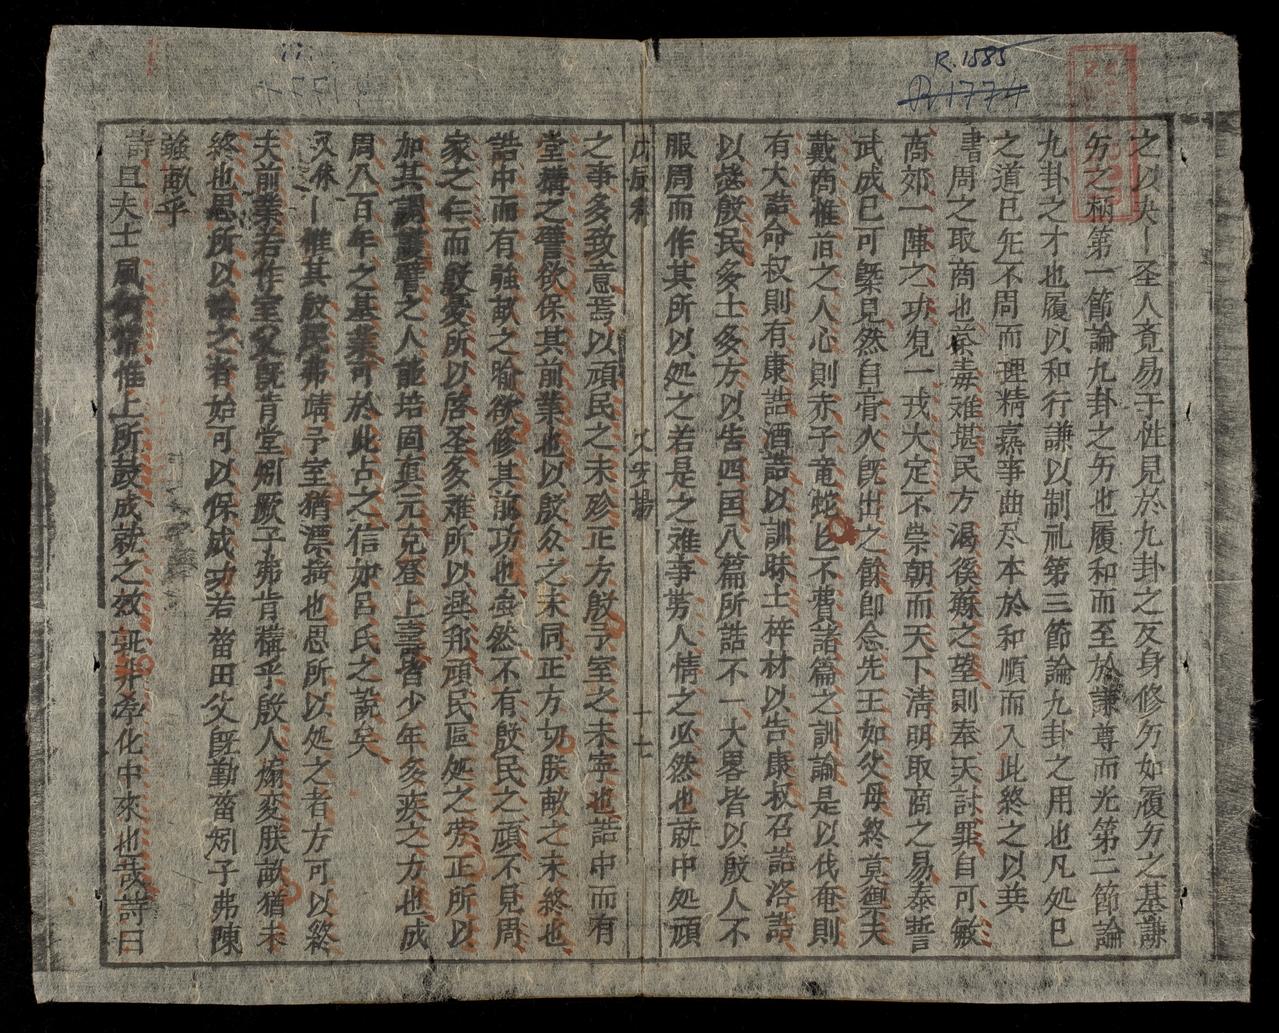 R.1585
R.1774
之以夬丨圣人竟易于性見於九卦之反身修𭓇如履𭓇之基謙
𭓇之柄第一節論九卦之𭓇也履和而至於謙尊而光第二節論
九卦之才也履以和行謙以制礼第三節論九卦之用也凡処巳
之道巳无不周而理精事曲尽本於和順而入此終之以共
書周之取商也荼毒难堪民方渴徯蘇之望則奉天討罪自可敏
商郊一陣之功見一戎大定不崇朝而天下清明取商之易泰誓
武成巳可槩見然自膏火既出之餘卽念先王如父母終莫御夫
戴商惟旧之人心則赤子竜蛇不費諸篇之訓論是以伐奄則
有大誥命叔則有康誥酒誥以訓昧土梓材以告康叔召誥洛誥
以殷民多士多方以告四囯八篇所誥不一大畧皆以殷人不
服周而作其所以処之若是之难事势人情之必然也就中処頑
戊辰科 文安場 十七
之事多致意焉以頑民之未殄正方殷予室之未寧也誥中而有
堂構之譬欲保其前葉也以殷众之未同正方切朕畝之未終也
誥中而有強畝之喻欲修其前功也然不有殷民之頑不見周
家之仁而殷憂所以啓圣多难所以兴邦頑民區処之劳正所以
加其調護譬之人能培固真元克登上壽皆少年多疾之力也成
周八百年之基業可於此占之信如吕氏之說矣
又休丨惟其殷民弗靖予室猶漂揺也思所以処之者方可以終
夫前業若作室父既肯堂矧厥子弗肯構乎殷人煽変朕畝猶未
終也思所以之者始可以保成功若葘田父既勤葘矧子弗陳
強畝乎
詩且夫士風何常惟上所致成就之效化中來也哉詩曰